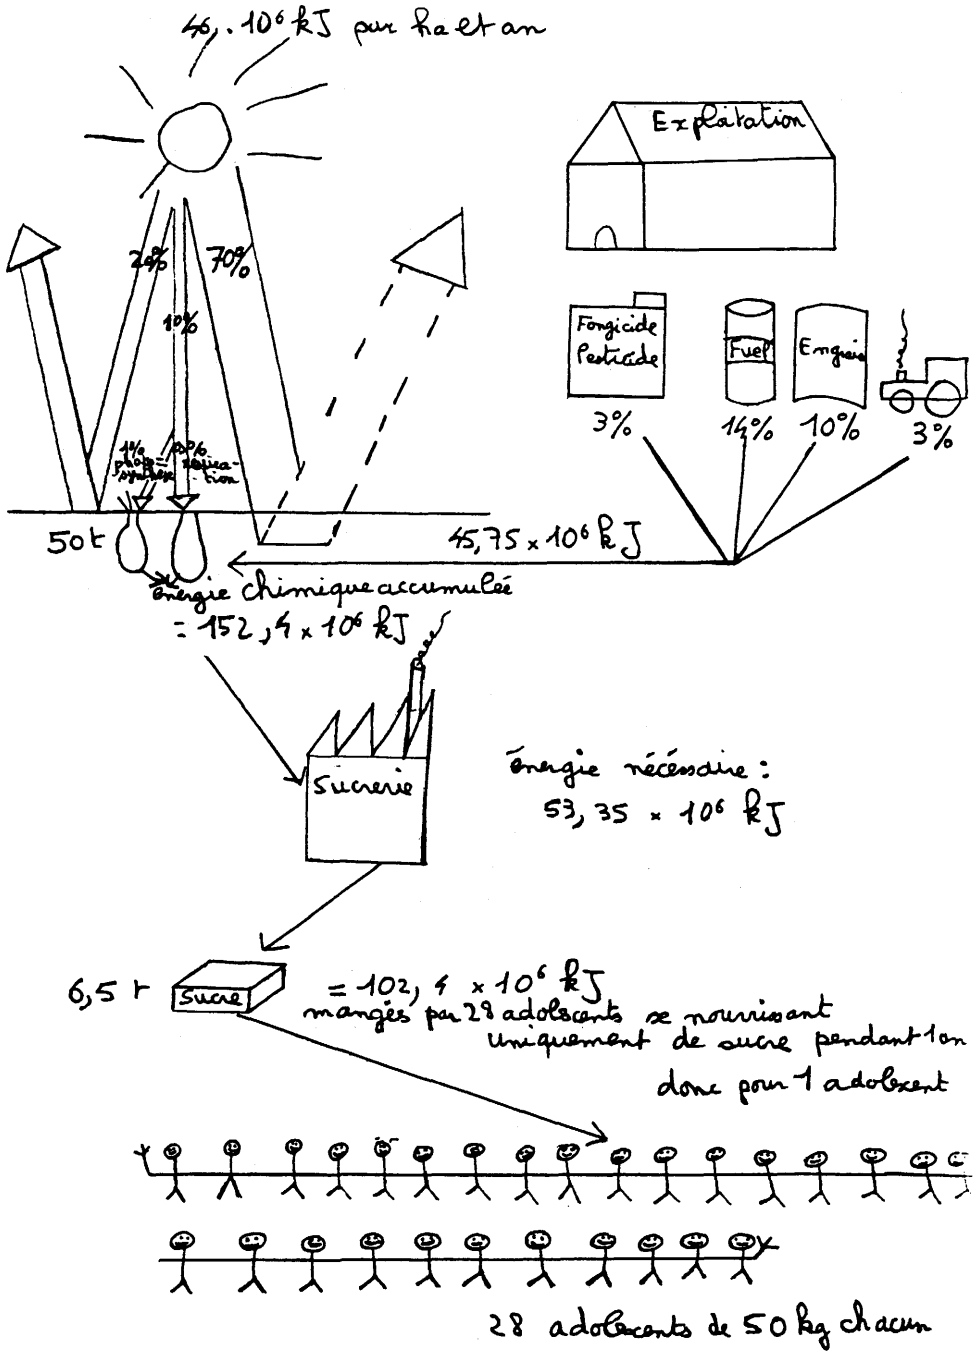 46,.10⁶ kJ par ha et an
Exploitation
20%
70%
10%
Fongicide
Pesticide
Fuel
Engrais
3%
14%
10%
3%
1%
photo=
synthèse
50t
45,75 x 10⁶ kJ
énergie chimique accumulée
= 152,4 x 10⁶ kJ
Sucrerie
énergie nécéssaire :
53,35 x 10⁶ kJ
6,5 t
Sucre
= 102,4 x 10⁶ kJ
mangés par 28 adolscents se nourrissant
uniquement de sucre pendant 1 an
donc pour 1 adolescent
28 adolescents de 50 kg chacun